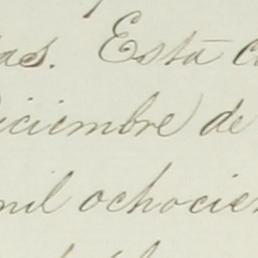 as. Está c
iciembre de
mil ochocien